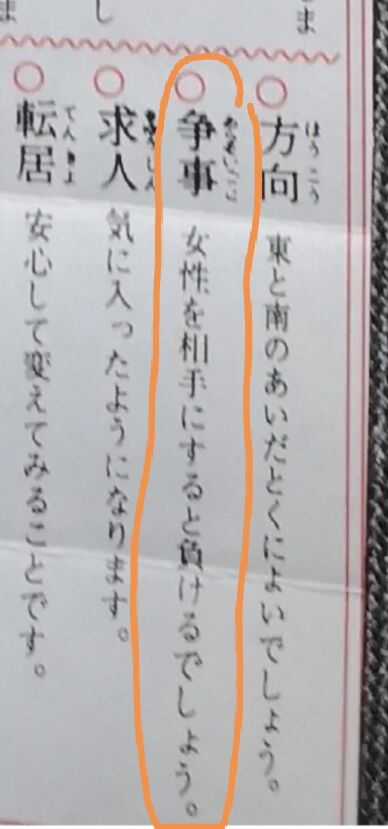 ま
方向 はうこう
東と南のあいだとくによいでしょう。
争事 あらそいごと
女性を相手にすると負けるでしょう。
し
求人
気に入ったようになります。
転居 てんきよ
安心して変えてみることです。
ま